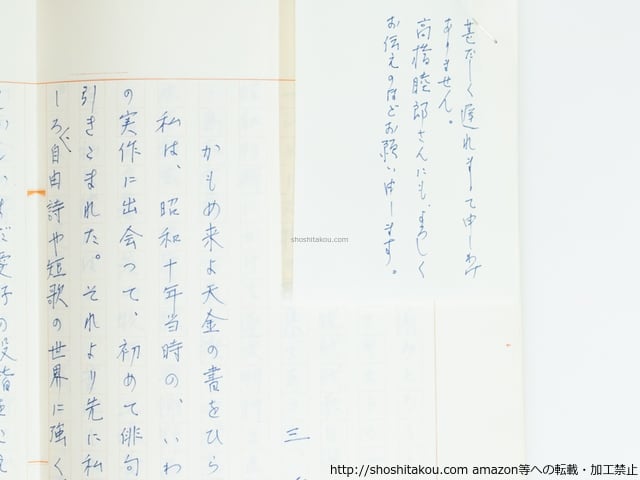 甚だしく遅れまして申しわけ
ありません。
高橋睦郎さんにも、よろしく
お伝えのほどお願いします。
三
かもめ来よ天金の書をひら
私は、昭和十年当時の、いわ
の実作に出会って、初めて俳句
引きこまれた。それより先に私
しろ自由詩や短歌の世界に強く
shoshitakou.com
http://shoshitakou.com amazon等への転載・加工禁止